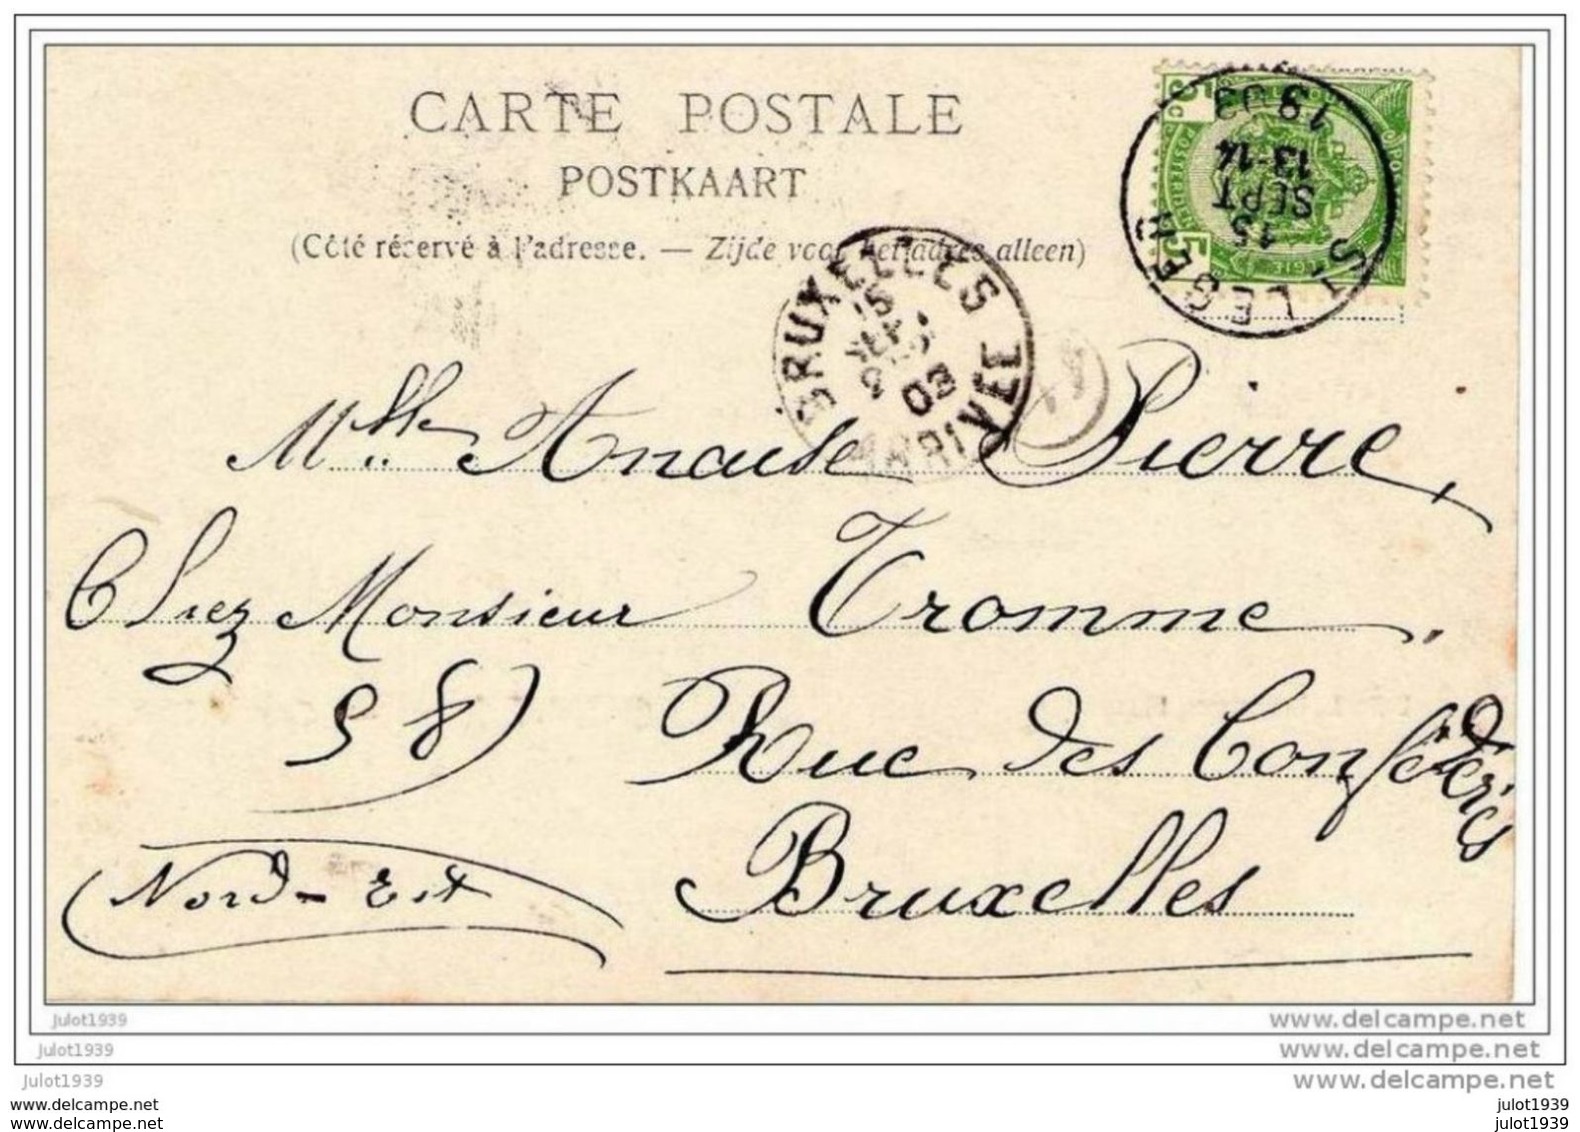 CARTE POSTALE
POSTKAART
(Côté réservé à l'adresse. — Zijde voor het adres alleen)
ST LEGER
15
SEPT
13-14
1903
5c 5c
BRUXELLES
03
Mlle Anaïse Pierre,
Chez Monsieur Tromme.
58) Rue des Confédérés
Nord-Est Bruxelles
julot1939 www.delcampe.net
julot1939 www.delcampe.net
julot1939 www.delcampe.net
www.delcampe.net julot1939
www.delcampe.net julot1939